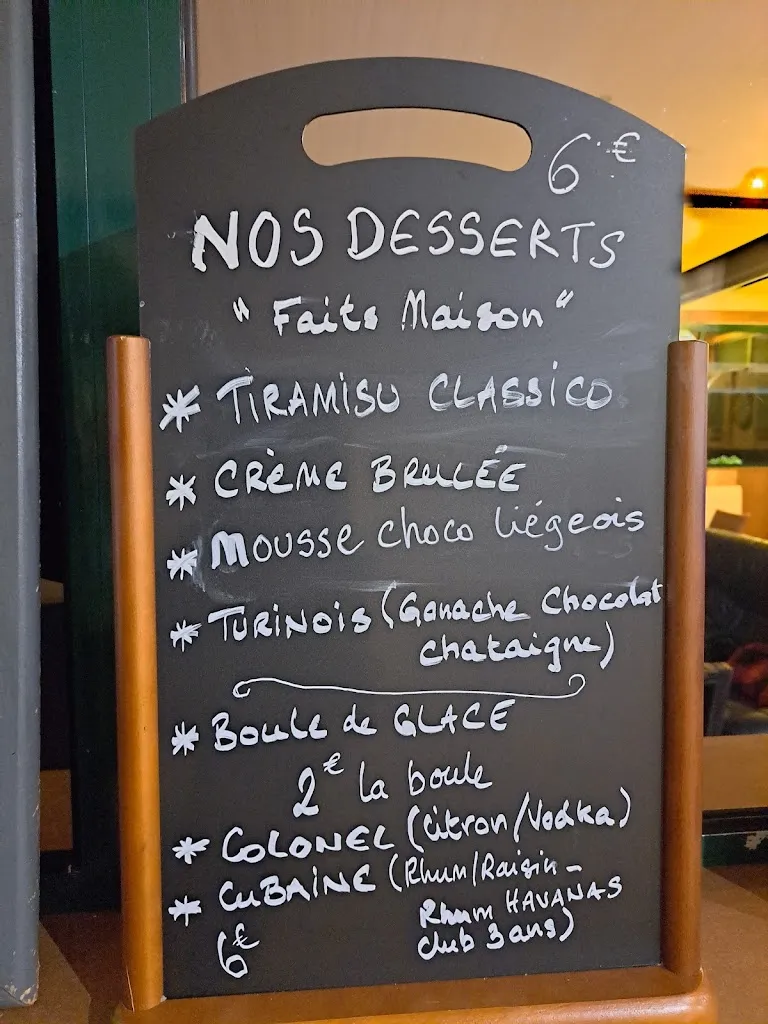 6€
NOS DESSERTS
"Faits Maison"
* TIRAMISU CLASSICO
* CRÈME BRULÉE
* Mousse choco liégeois
* TURINOIS (Ganache Chocolat
chataigne)
* Boule de GLACE
2€ la boule
* COLONEL (Citron/Vodka)
* CUBAINE (Rhum/Raisin-
Rhum HAVANAS
club 3 ans)
6€